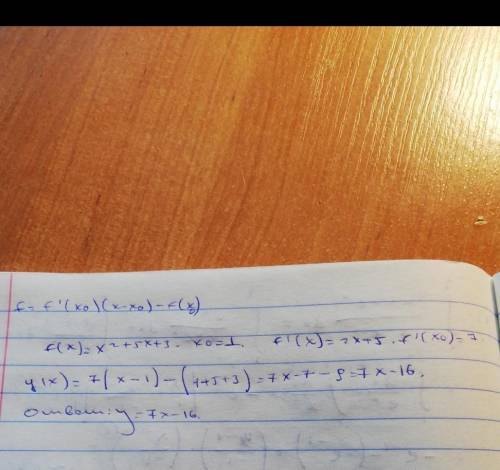 f = f'(x0)(x-x0)-f(x0)
f(x)=x²+5x+3. x0=1. f'(x)=2x+5. f'(x0)=7.
y(x)=7(x-1)-(1+5+3)=7x-7-9=7x-16.
Ответ: y=7x-16.